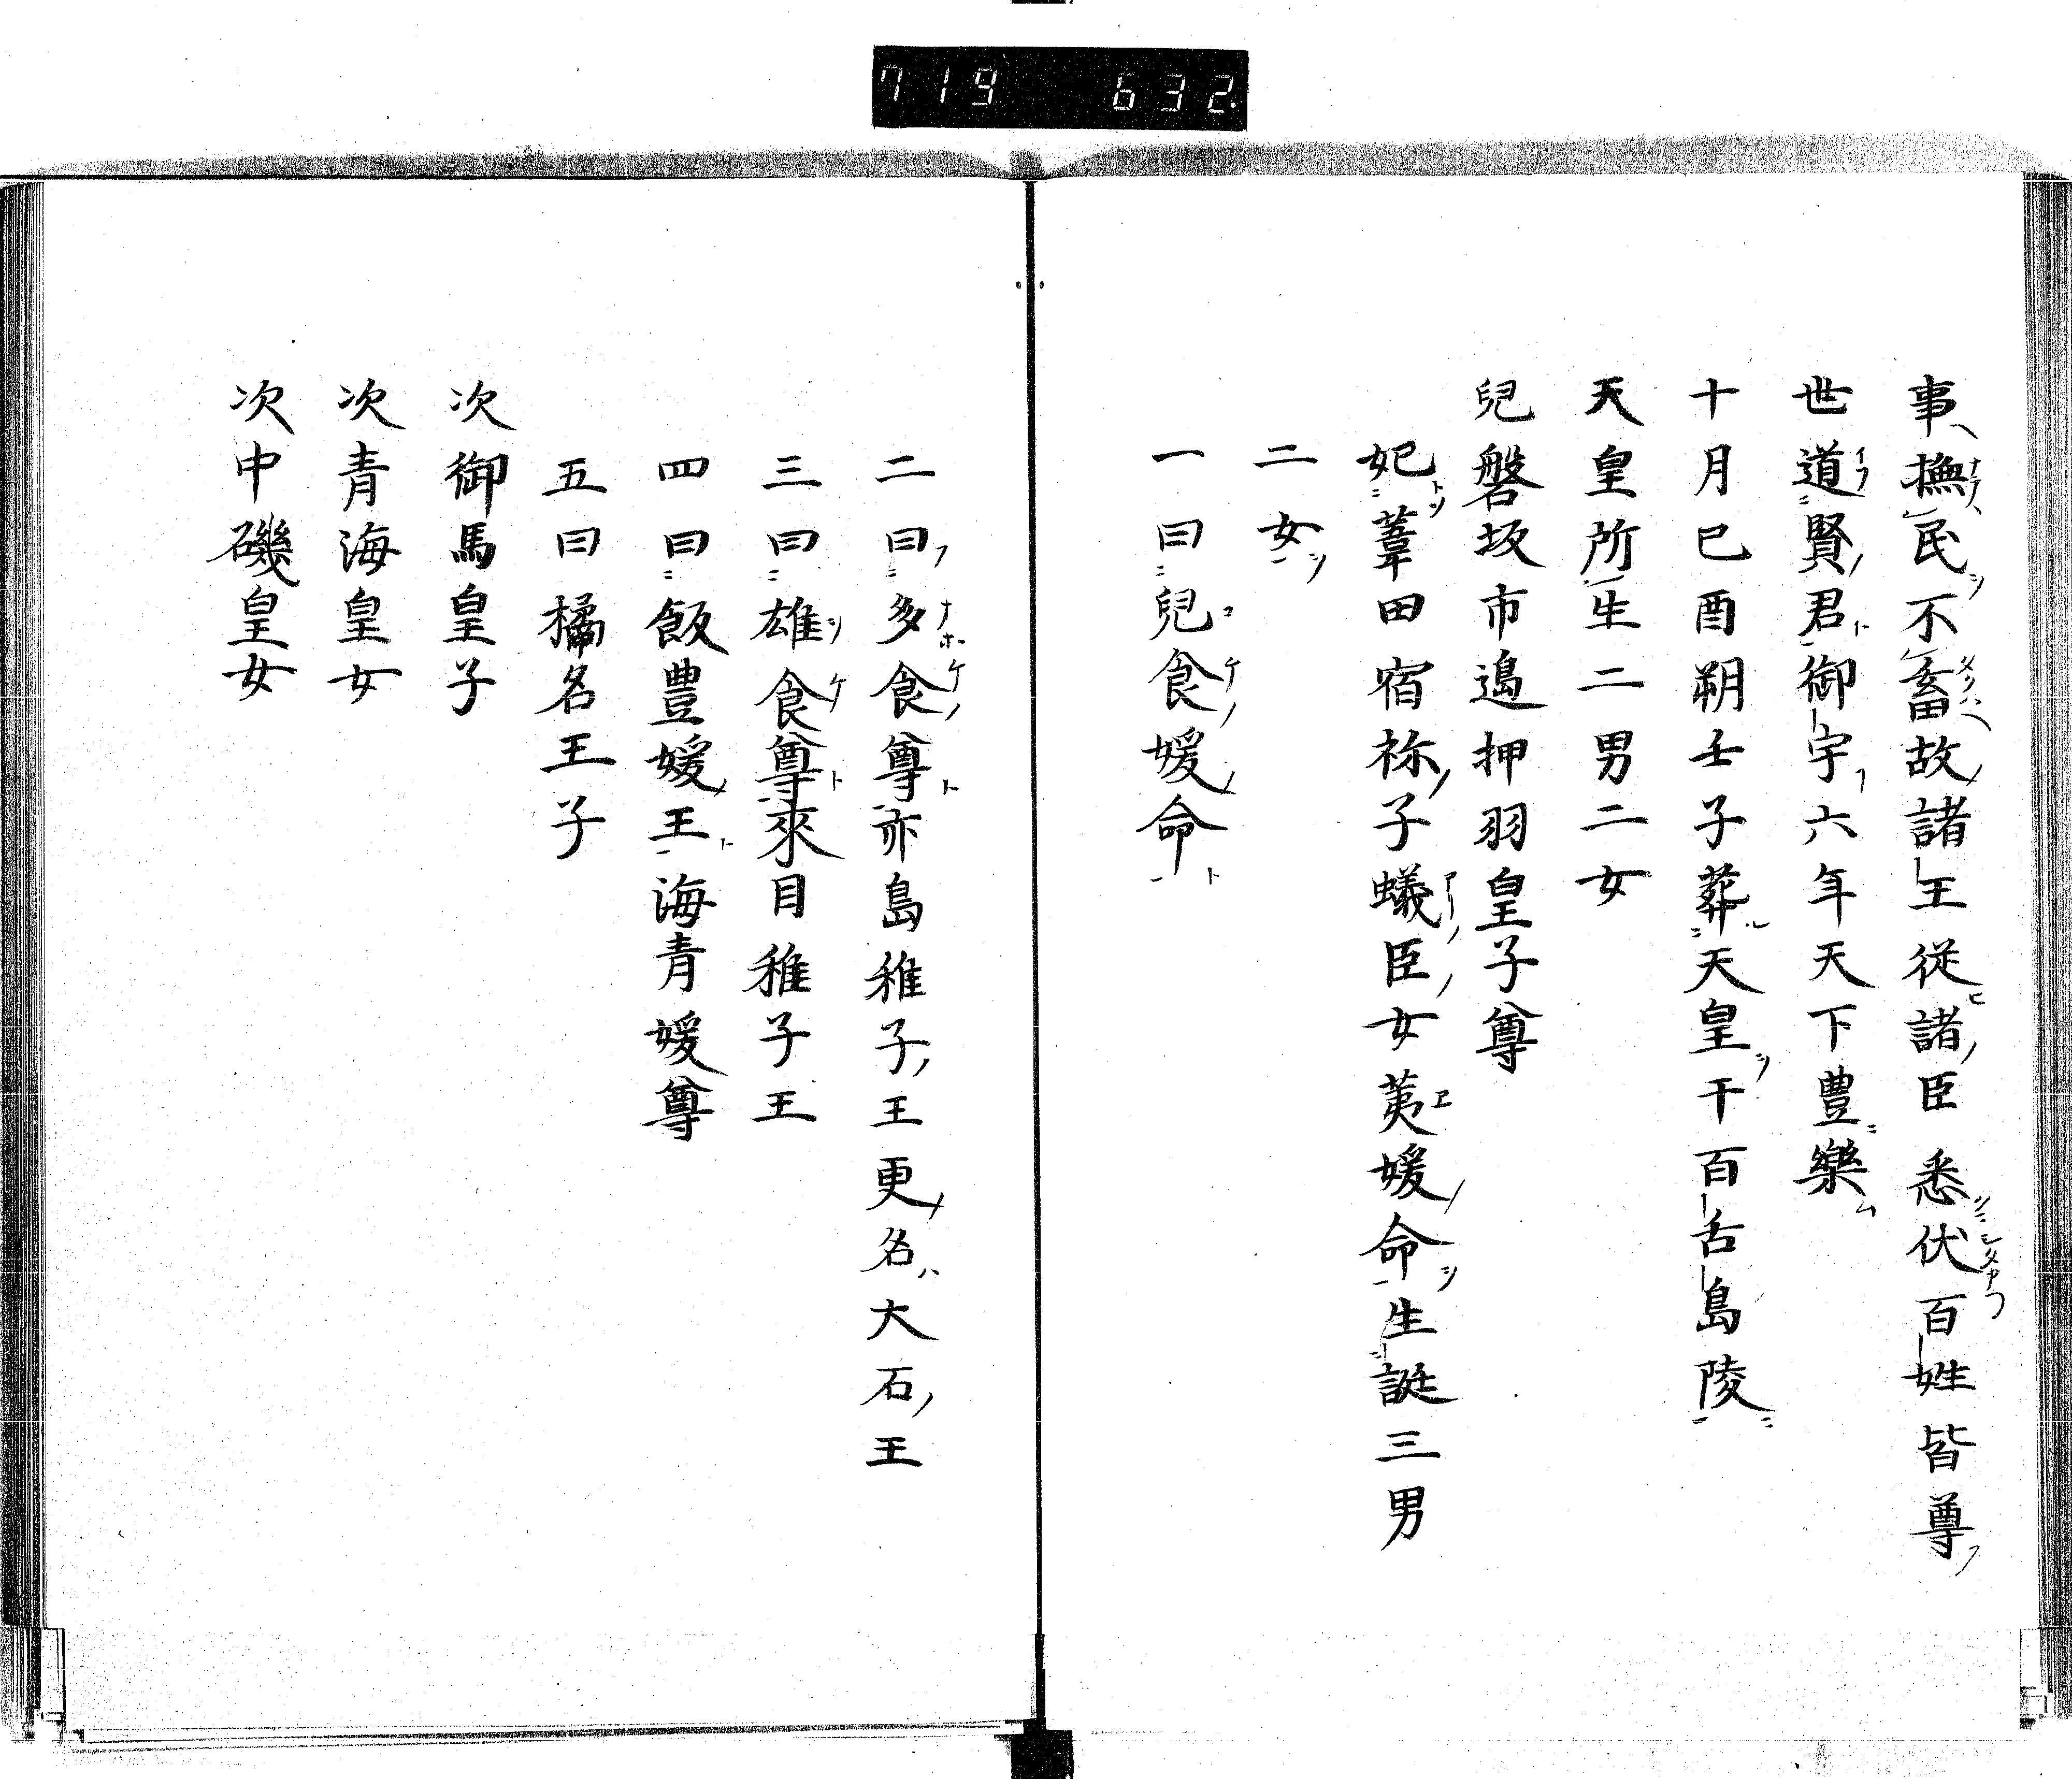 719 632.
事撫民不畜故諸王從諸臣悉伏百姓皆尊
世道賢君御宇六年天下豊樂
十月己酉朔壬子葬天皇于百舌島陵
天皇所生二男二女
兒磐坂市邉押羽皇子尊
妃葦田宿祢子蟻臣女荑媛命生誕三男
二女
一曰兒食媛命
二曰多食尊亦島稚子王更名大石王
三曰雄食尊來目稚子王
四曰飯豊媛王海青媛尊
五曰橘名王子
次御馬皇子
次青海皇女
次中磯皇女